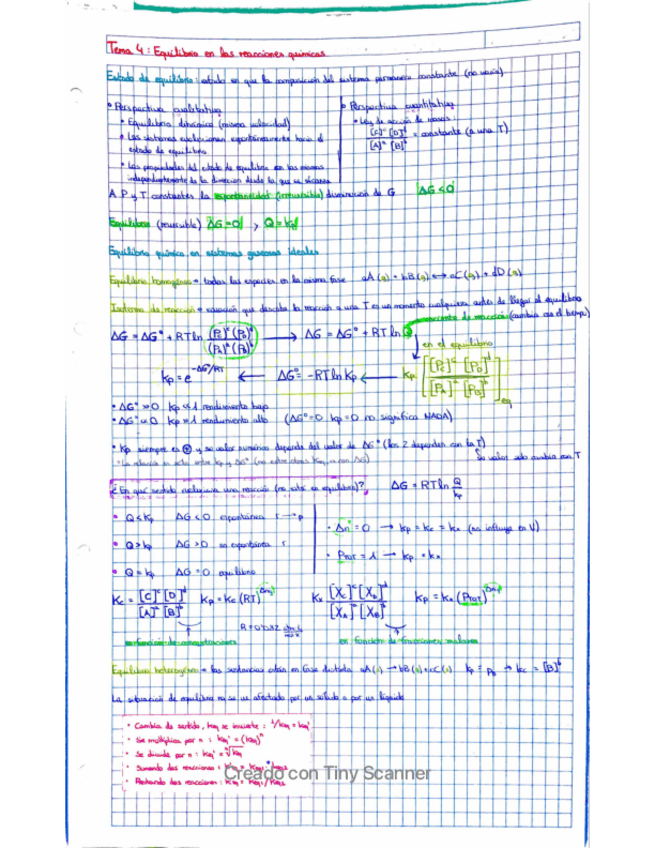 Tema 4: Equilibrio en las reacciones químicas
Estado de equilibrio: estado en que la composición del sistema permanece constante (no varía)
• Perspectiva cualitativa
• Equilibrio dinámico (misma velocidad)
• Los sistemas evolucionan espontáneamente hacia el estado de equilibrio
• Las propiedades del estado de equilibrio son las mismas independientemente de la dirección desde la que se alcanza
• Perspectiva cuantitativa
• Ley de acción de masas:
[C]^c [D]^d / [A]^a [B]^b = constante (a una T)
A P y T constantes la espontaneidad (irreversible) disminución de G ΔG<0
Equilibrio (reversible) ΔG=0, Q=Kp
Equilibrio químico en sistemas gaseosos ideales
Equilibrio homogéneo → todas las especies en la misma fase aA(g) + bB(g) ↔ cC(g) + dD(g)
Isoterma de reacción → ecuación que describe la reacción a una T en un momento cualquiera antes de llegar al equilibrio
cociente de reacción (cambia con el tiempo)
ΔG = ΔG° + RT ln (Pc)^c (PD)^d / (PA)^a (PB)^b → ΔG = ΔG° + RT ln Q
en el equilibrio
Kp = e^-ΔG°/RT ← ΔG° = -RT ln Kp ← Kp [[Pc]^c [PD]^d / [PA]^a [PB]^b] eq
rendimiento bajo
rendimiento alto (ΔG°=0 kp=0 no significa NADA)
• Kp siempre es ⊕ y su valor numérico depende del valor de ΔG° (los 2 dependen con la T)
Su valor solo cambia con T
¿En qué sentido evoluciona una reacción (no está en equilibrio)? ΔG = RT ln Q/Kp
• Q<Kp ΔG<0 espontánea r→p
• Q>Kp ΔG>0 no espontánea r
• Q=Kp ΔG=0 equilibrio
• Δn=0 → Kp = Kc = Kx (no influye en V)
• PTOT = 1 → Kp = Kx
Kc = [C]^c [D]^d / [A]^a [B]^b Kp = Kc (RT)^Δn
R = 0'082
en función de concentraciones
Kx [Xc]^c [XD]^d / [XA]^a [XB]^b Kp = Kx (PTOT)^Δn
en función de fracciones molares
Equilibrio heterogéneo → las sustancias están en fase distinta
La situación de equilibrio no se ve afectado por un sólido o por un líquido
• Cambia de sentido, keq se invierte: 1/keq = keq'
• Se multiplica por n: keq' = (keq)^n
• Se divide por n: keq' = ⁿ√keq
• Sumando dos reacciones: Keq = Keq1 · Keq2
• Restando dos reacciones: Keq = Keq1/Keq2
Creado con Tiny Scanner